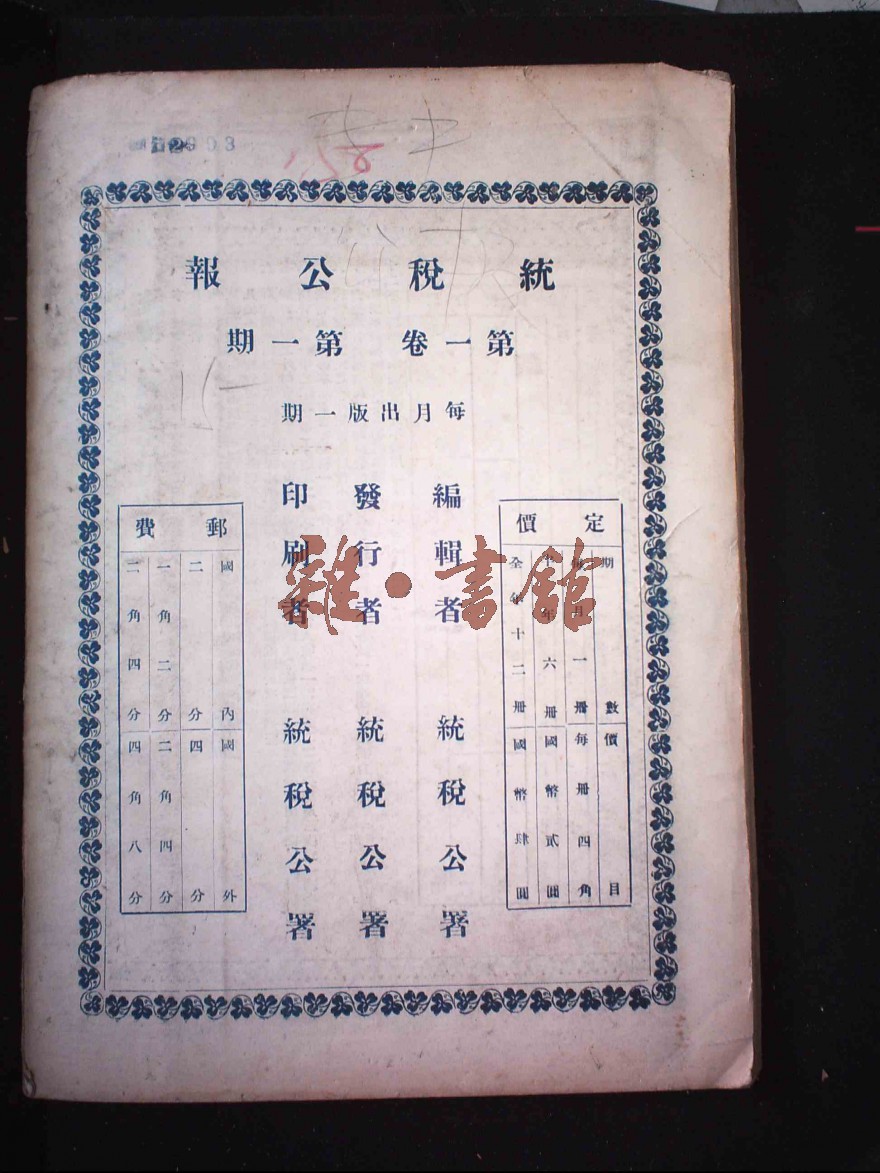 統稅公報
第一卷 第一期
每月出版一期
定價
期數 價目
每月一冊 每冊四角
半年六冊 國幣貳圓
全年十二冊 國幣肆圓
編輯者 統稅公署
發行者 統稅公署
印刷者 統稅公署
郵費
國內 國外
二分 四分
一角二分 二角四分
二角四分 四角八分
雜·書館